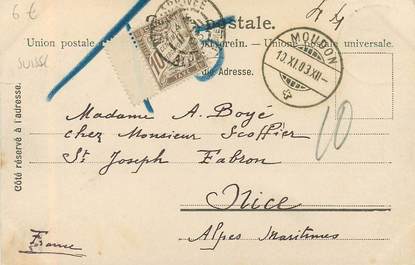 6 €
SUISSE
postale.
Union postale
Union postale universelle.
de Adresse.
Côté réservé à l'adresse.
MOUDON
10.XI.03.XII-
10
Madame A. Boyé
chez Monsieur Scoffier
St Joseph Fabron
Nice
Alpes Maritimes
France